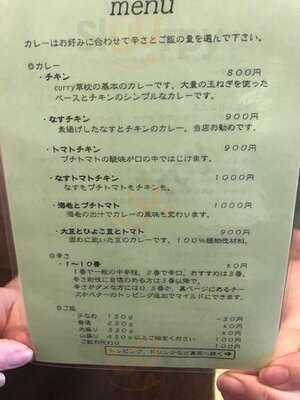 menu
カレーはお好みに合わせて辛さとご飯の量を選んで下さい。
◎カレー
・チキン 800円
curry草枕の基本のカレーです。大量の玉ねぎを使った
ベースとチキンのシンプルなカレーです。
・なすチキン 900円
素揚げしたなすとチキンのカレー。当店お勧めです。
・トマトチキン 900円
プチトマトの酸味が口の中ではじけます。
・なすトマトチキン 1000円
なすもプチトマトもチキンも。
・海老とプチトマト 1000円
海老の出汁でカレーの風味も変わります。
・大豆とひよこ豆とトマト 900円
固めに炊いた豆のカレーです。100%植物性材料。
◎辛さ
・1〜10番 ±0円
1番で一般の中辛程、2番で辛口、おすすめは3番、
辛さ耐性に自信のある方は5番以降で、
辛さがダメな方には0.5番か、裏ページにあるチー
ズやバターのトッピング追加でマイルドにできます。
◎ご飯
少なめ 150g -30円
普通 250g ±0円
大盛り 350g ±0円
山盛り 450g以上ご指定ください 100円
ご飯お代わり 100円
トッピング、ドリンクなど裏面へ続く→